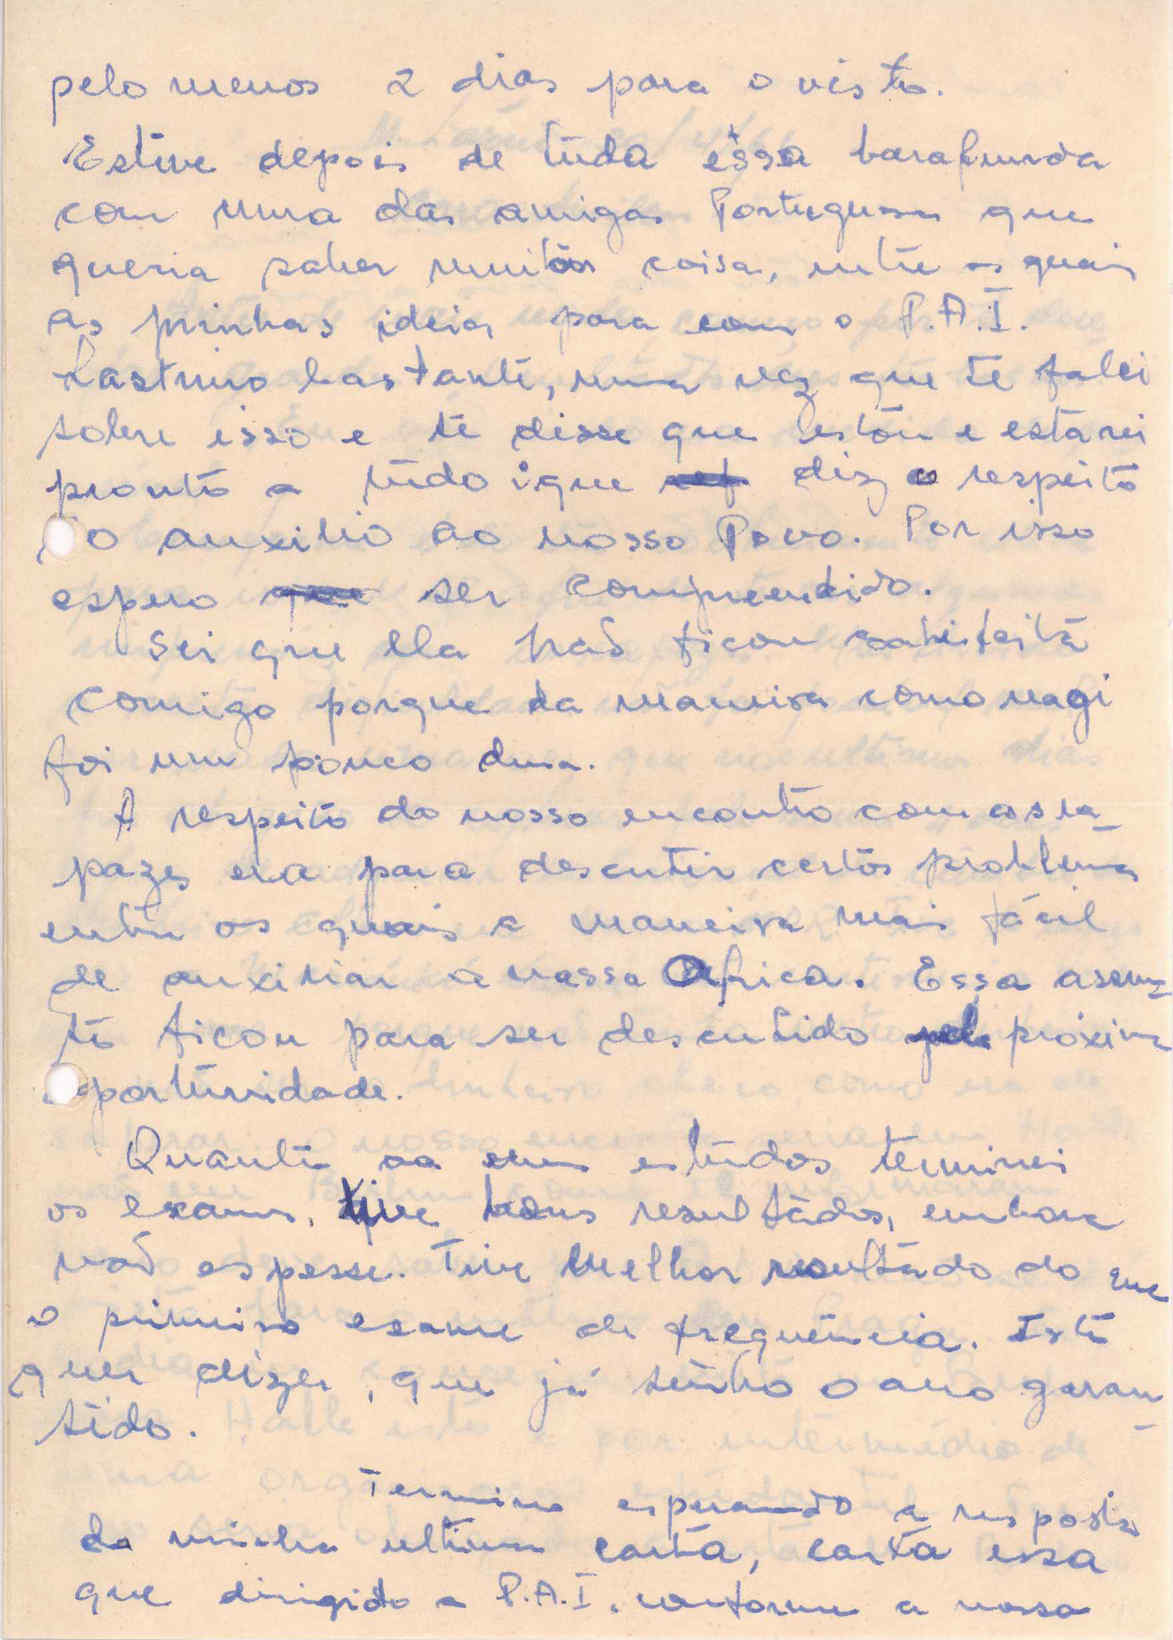 pelo menos 2 dias para o visto.
Estive depois de tuda essa barafunda
com uma das amigas Portuguesas que
queria saber muitas coisa, entre as quais
as minhas ideias para com o P.A.I.
Lastimo bastante, uma vez que te falei
sobre isso e te disse que estou e estarei
pronto a tudo que diz a respeito
o auxilio ao nosso Povo. Por isso
espero que ser compreendido.
Sei que ela não ficou satisfeita
comigo porque da maneira como reagi
foi um pouco dura.
A respeito do nosso encontro com os ra_
pazes era para descutir certos problemas
entre os quais a maneira mais fácil
de auxiliar a nossa Africa. Essa assun_
to ficou para ser descutido pela próxima
oportunidade.
Quanto aos meus estudos terminei
os exames, tive bons resultados, embora
não espesse. Tive melhor resultado do que
o primeiro exame de frequência. Isto
quer dizer, que já tenho o ano garan_
tido.
Termino esperando a resposta
da minha ultima carta, carta essa
que dirigido a P.A.I. conforme a nossa